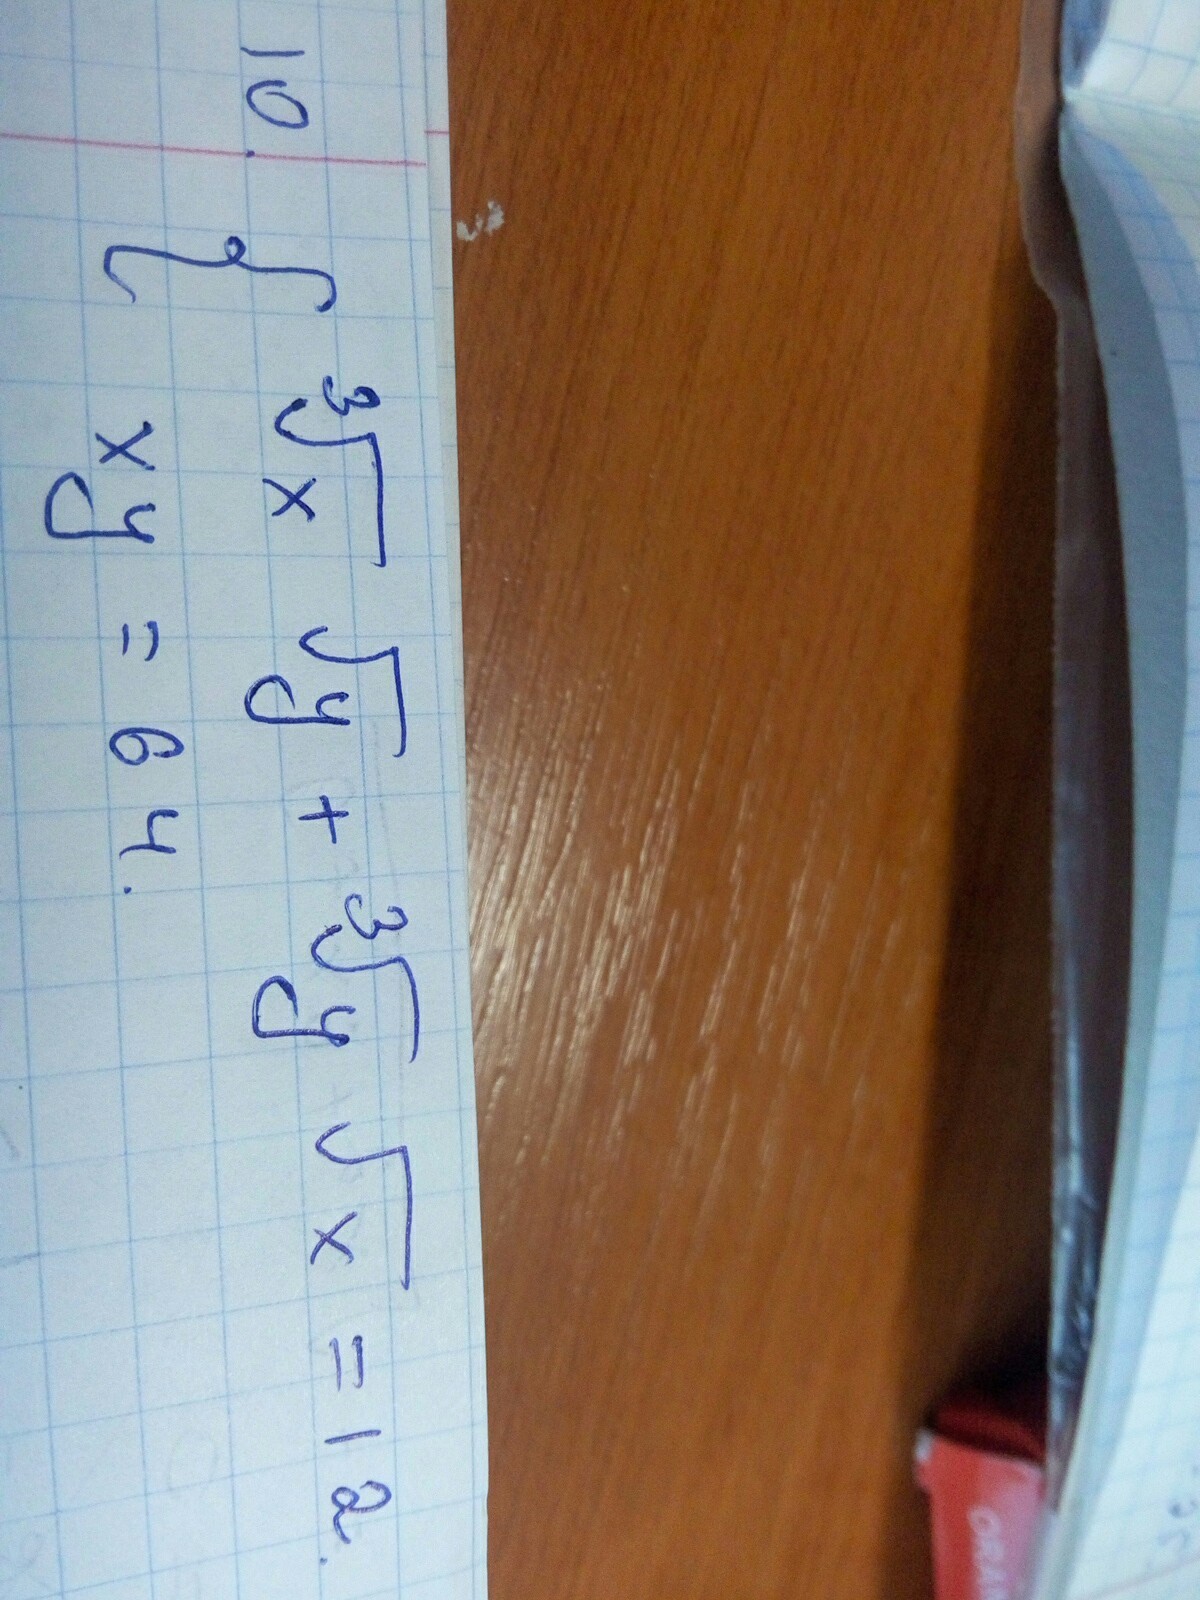 10. { ∛x √y + ∛y √x = 12.
xy = 64.